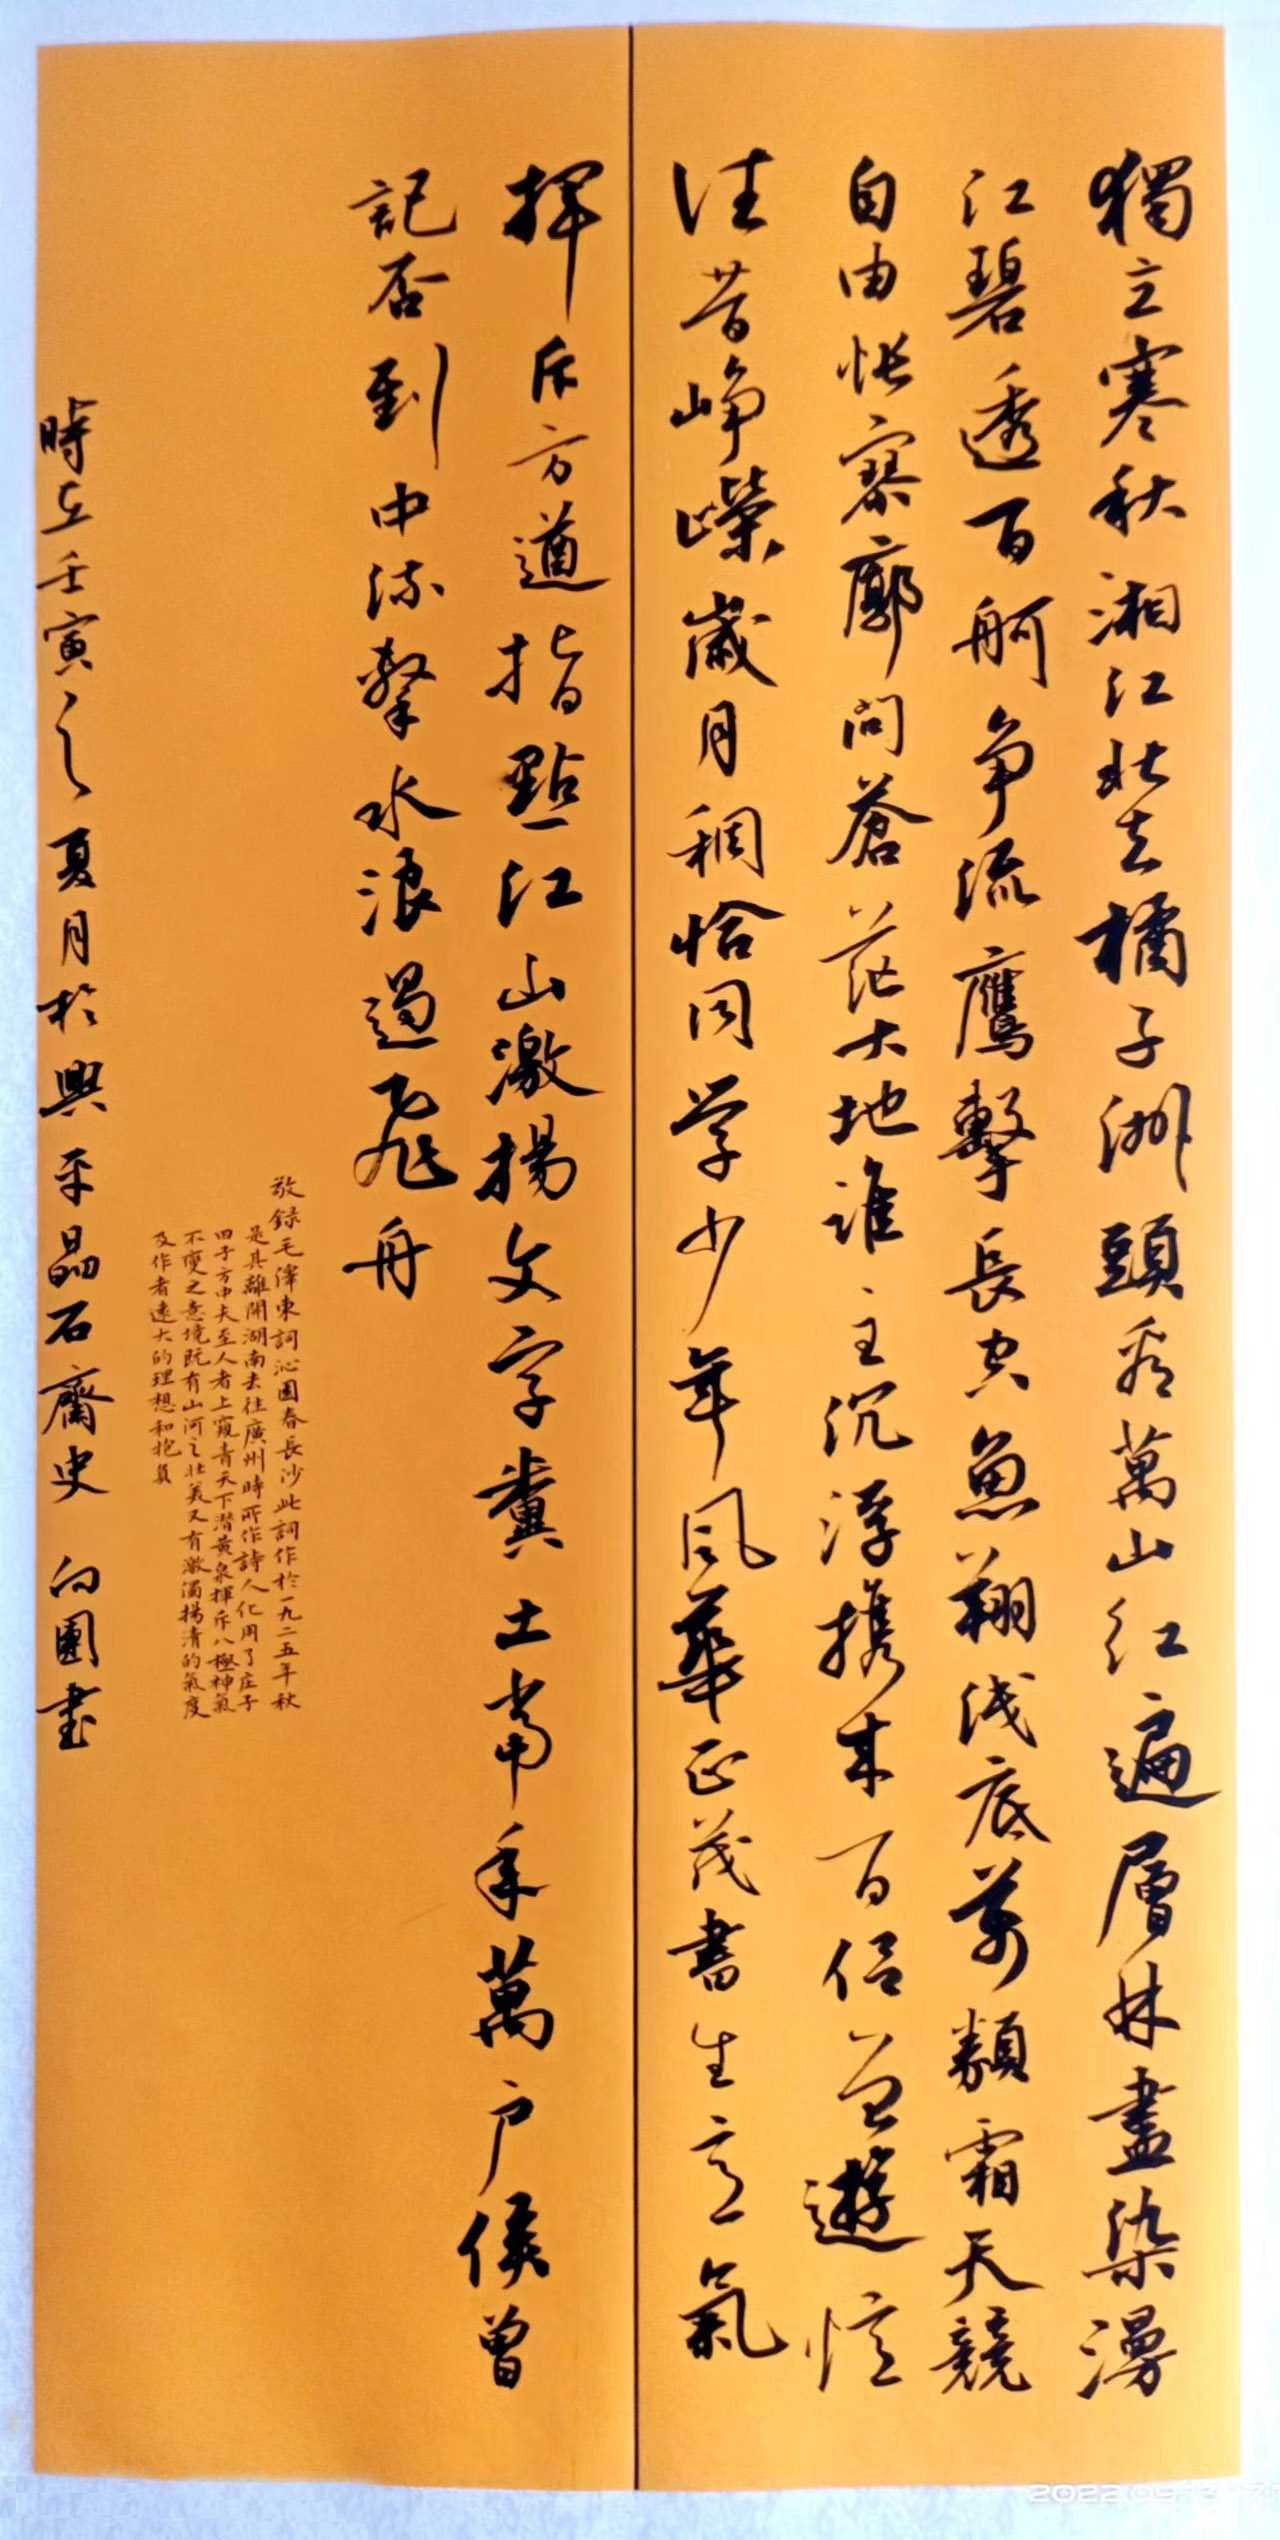 獨立寒秋湘江北去橘子洲頭看萬山紅遍層林盡染漫
江碧透百舸争流鷹擊長空魚翔浅底萬類霜天競
自由悵寥廓問蒼茫大地誰主沉浮携来百侣曾遊憶
往昔峥嵘歲月稠恰同学少年風華正茂書生意氣
揮斥方遒指點江山激揚文字糞土當年萬户侯曾
記否到中流擊水浪遏飛舟
敬録毛澤東詞沁園春長沙此詞作於一九二五年秋
是其離開湖南去往廣州時所作詩人化用了庄子
田子方中夫至人者上窺青天下潜黄泉揮斥八極神氣
不變之意境既有山河之壮美又有激濁揚清的氣度
及作者遠大的理想和抱負
時在壬寅之夏月於興平晶石齋史向團書
2022.09